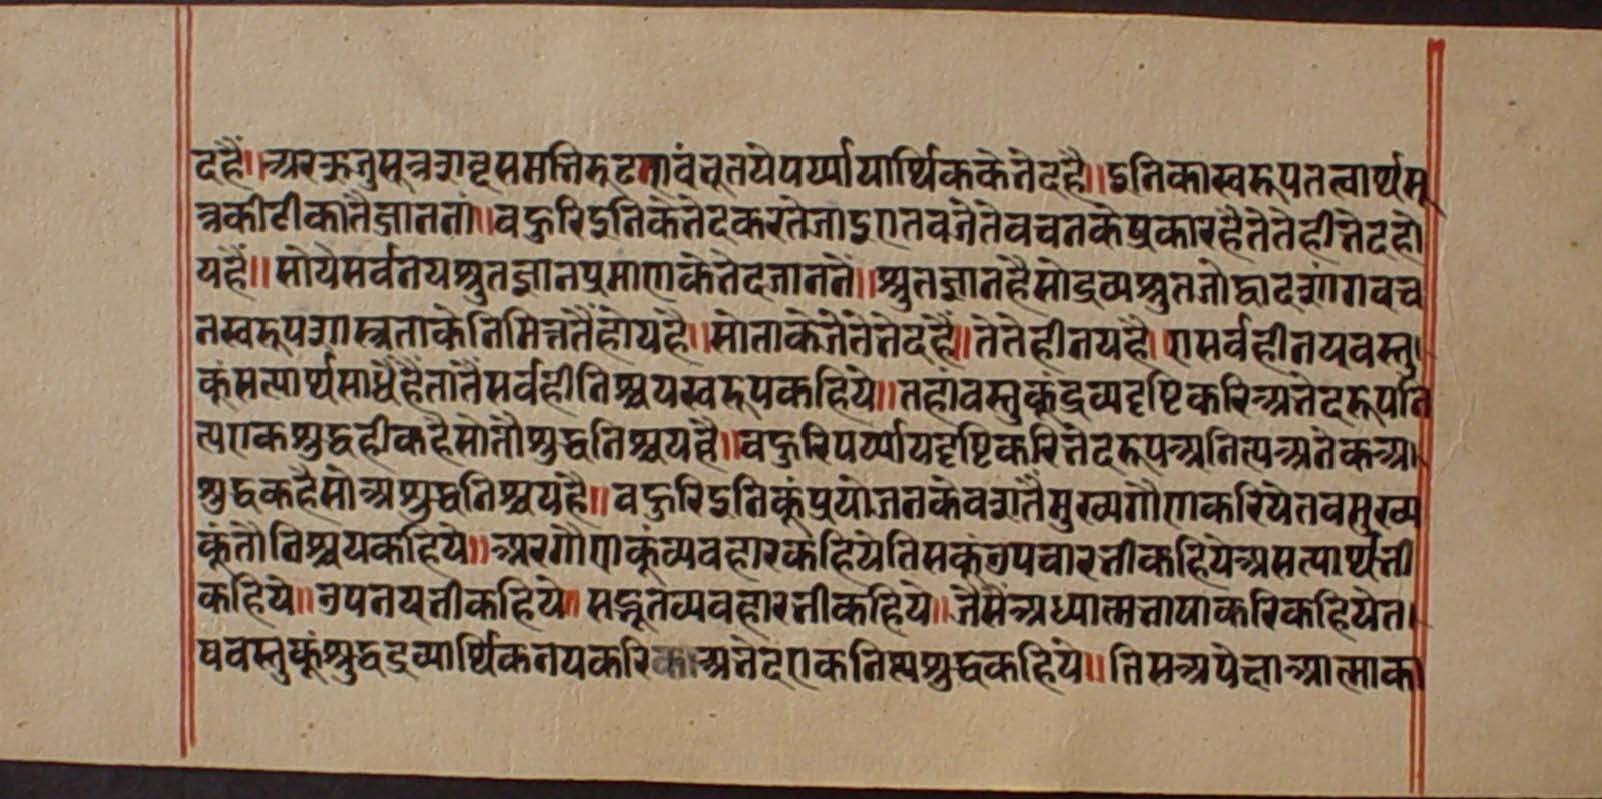 दहैं॥अरऋजुसूत्रशब्दसमभिरूढएवंभूतयेपर्य्यायार्थिककेभेदहै॥इनिकास्वरूपतत्वार्थसू
त्रकीटीकातैंजाननां॥वहुरिइनिकेभेदकरतेजाइएतवजेतेवचनकेप्रकारहैतेतेहीभेदहो
यहैं॥सोयेसर्वनयश्रुतज्ञानप्रमाणकेभेदजाननें॥श्रुतज्ञानहैसोद्रव्यश्रुतजोद्वादशांगवच
नस्वरूपशास्त्रताकेनिमित्ततैंहोयहै॥सोताकेजेतेभेदहैं॥तेतेहीनयहै।एसर्वहीनयवस्तु
कूंसत्यार्थसाधैंहैंतातैंसर्वहीनिश्चयस्वरूपकहिये॥तहांवस्तुकूंद्रव्यदृष्टिकरिअभेदरूपनि
त्यएकशुद्धहीकहैसोतौशुद्धनिश्चयहै॥वहुरिपर्य्यायदृष्टिकरिभेदरूपअनित्यअनेकअ
शुद्धकहैसोअशुद्धनिश्चयहै॥वहुरिइनिकूंप्रयोजनकेवशतैंमुख्यगौणकरियेतवमुख्य
कूंतौनिश्चयकहिये॥अरगौणकूंव्यवहारकहियेतिसकूंउपचारभीकहियेअसत्यार्थभी
कहिये॥उपनयभीकहिये॥सद्भूतव्यवहारभीकहिये॥जैसैंअध्यात्मभाषाकरिकहियेत।
षवस्तुकूंशुद्धद्रव्यार्थिकनयकरिअभेदएकनित्यशुद्धकहिये॥तिसअपेक्षाआत्माका